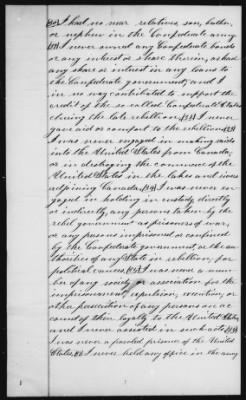 I had no near relatives, son, brother,
or nephew in the Confederate army
I never owned any Confederate bonds
or any interest or share therein, or had
any share or interest in any loans to
the Confederate government, and I
in no way contributed to support the
credit of the so called Confederate States
during the late rebellion. I never
gave aid or comfort to the rebellion.
I was never engaged in making raids
into the United States from Canada,
or in destroying the commerce of the
United States in the lakes and rivers
adjoining Canada. I was never en-
gaged in holding in custody directly
or indirectly, any persons taken by the
rebel government as prisoners of war,
or any persons imprisoned or confined
by the Confederate government, or the au-
thorities of any State in rebellion, for
political causes. I was never a mem-
ber of any society or association for the
imprisonment, expulsion, execution, or
other persecution of any persons on ac-
count of their loyalty to the United States,
and I never assisted in such acts.
I was never a paroled prisoner of the United
States. I never held any office in the army